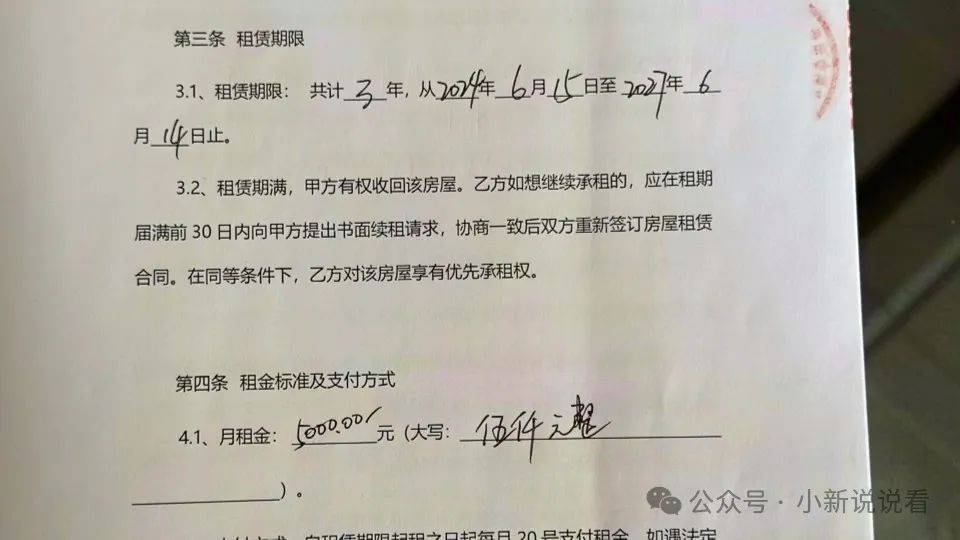 第三条 租赁期限
3.1、租赁期限： 共计3年，从2024年6月15日至2027年6
月14日止。
3.2、租赁期满，甲方有权收回该房屋。乙方如想继续承租的，应在租期
届满前30日内向甲方提出书面续租请求，协商一致后双方重新签订房屋租赁
合同。在同等条件下，乙方对该房屋享有优先承租权。
第四条 租金标准及支付方式
4.1、月租金：5000.00/元（大写：伍仟元整
）。
方式：自租赁期限起租之日起每月20号支付租金，如遇法定
公众号·小新说说看